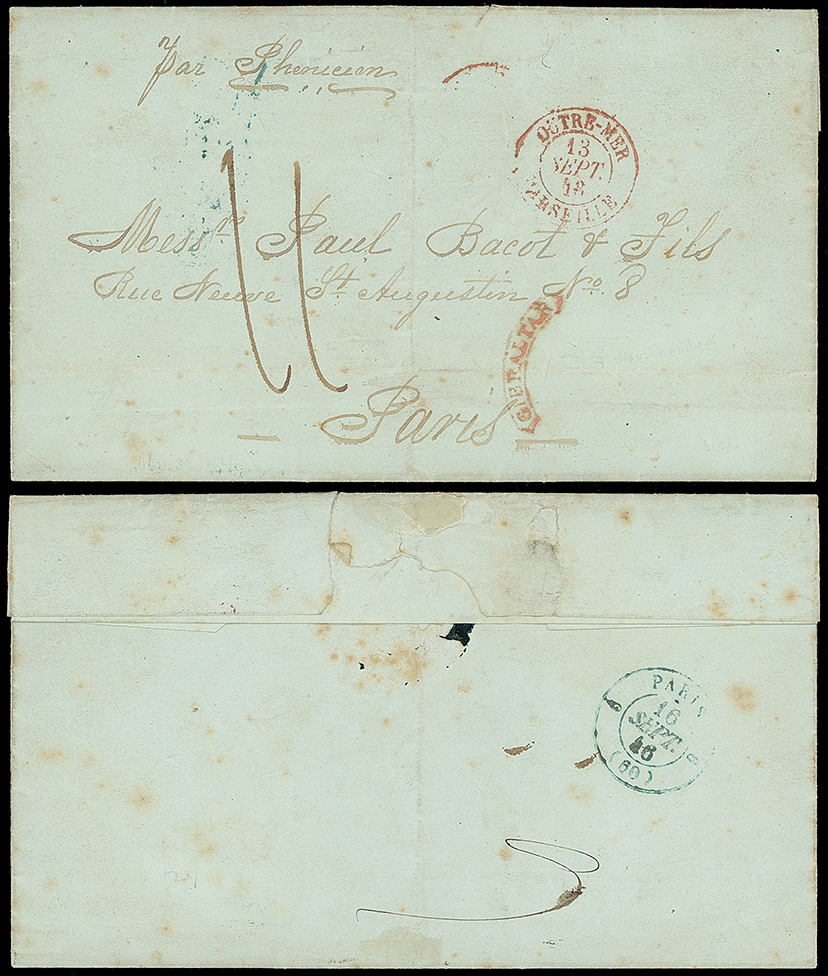 par Phenicien
OUTRE-MER
13
SEPT.
46
MARSEILLE
11
Messrs Paul Bacot & Fils
Rue Neuve St. Augustin No. 8
GIBRALTAR
Paris
PARIS
6 6
16
SEPT.
46
(60)